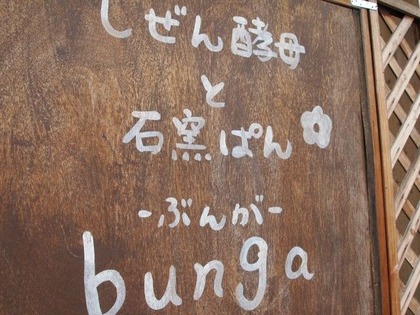 しぜん酵母
と
石窯ぱん
-ぶんが-
bunga